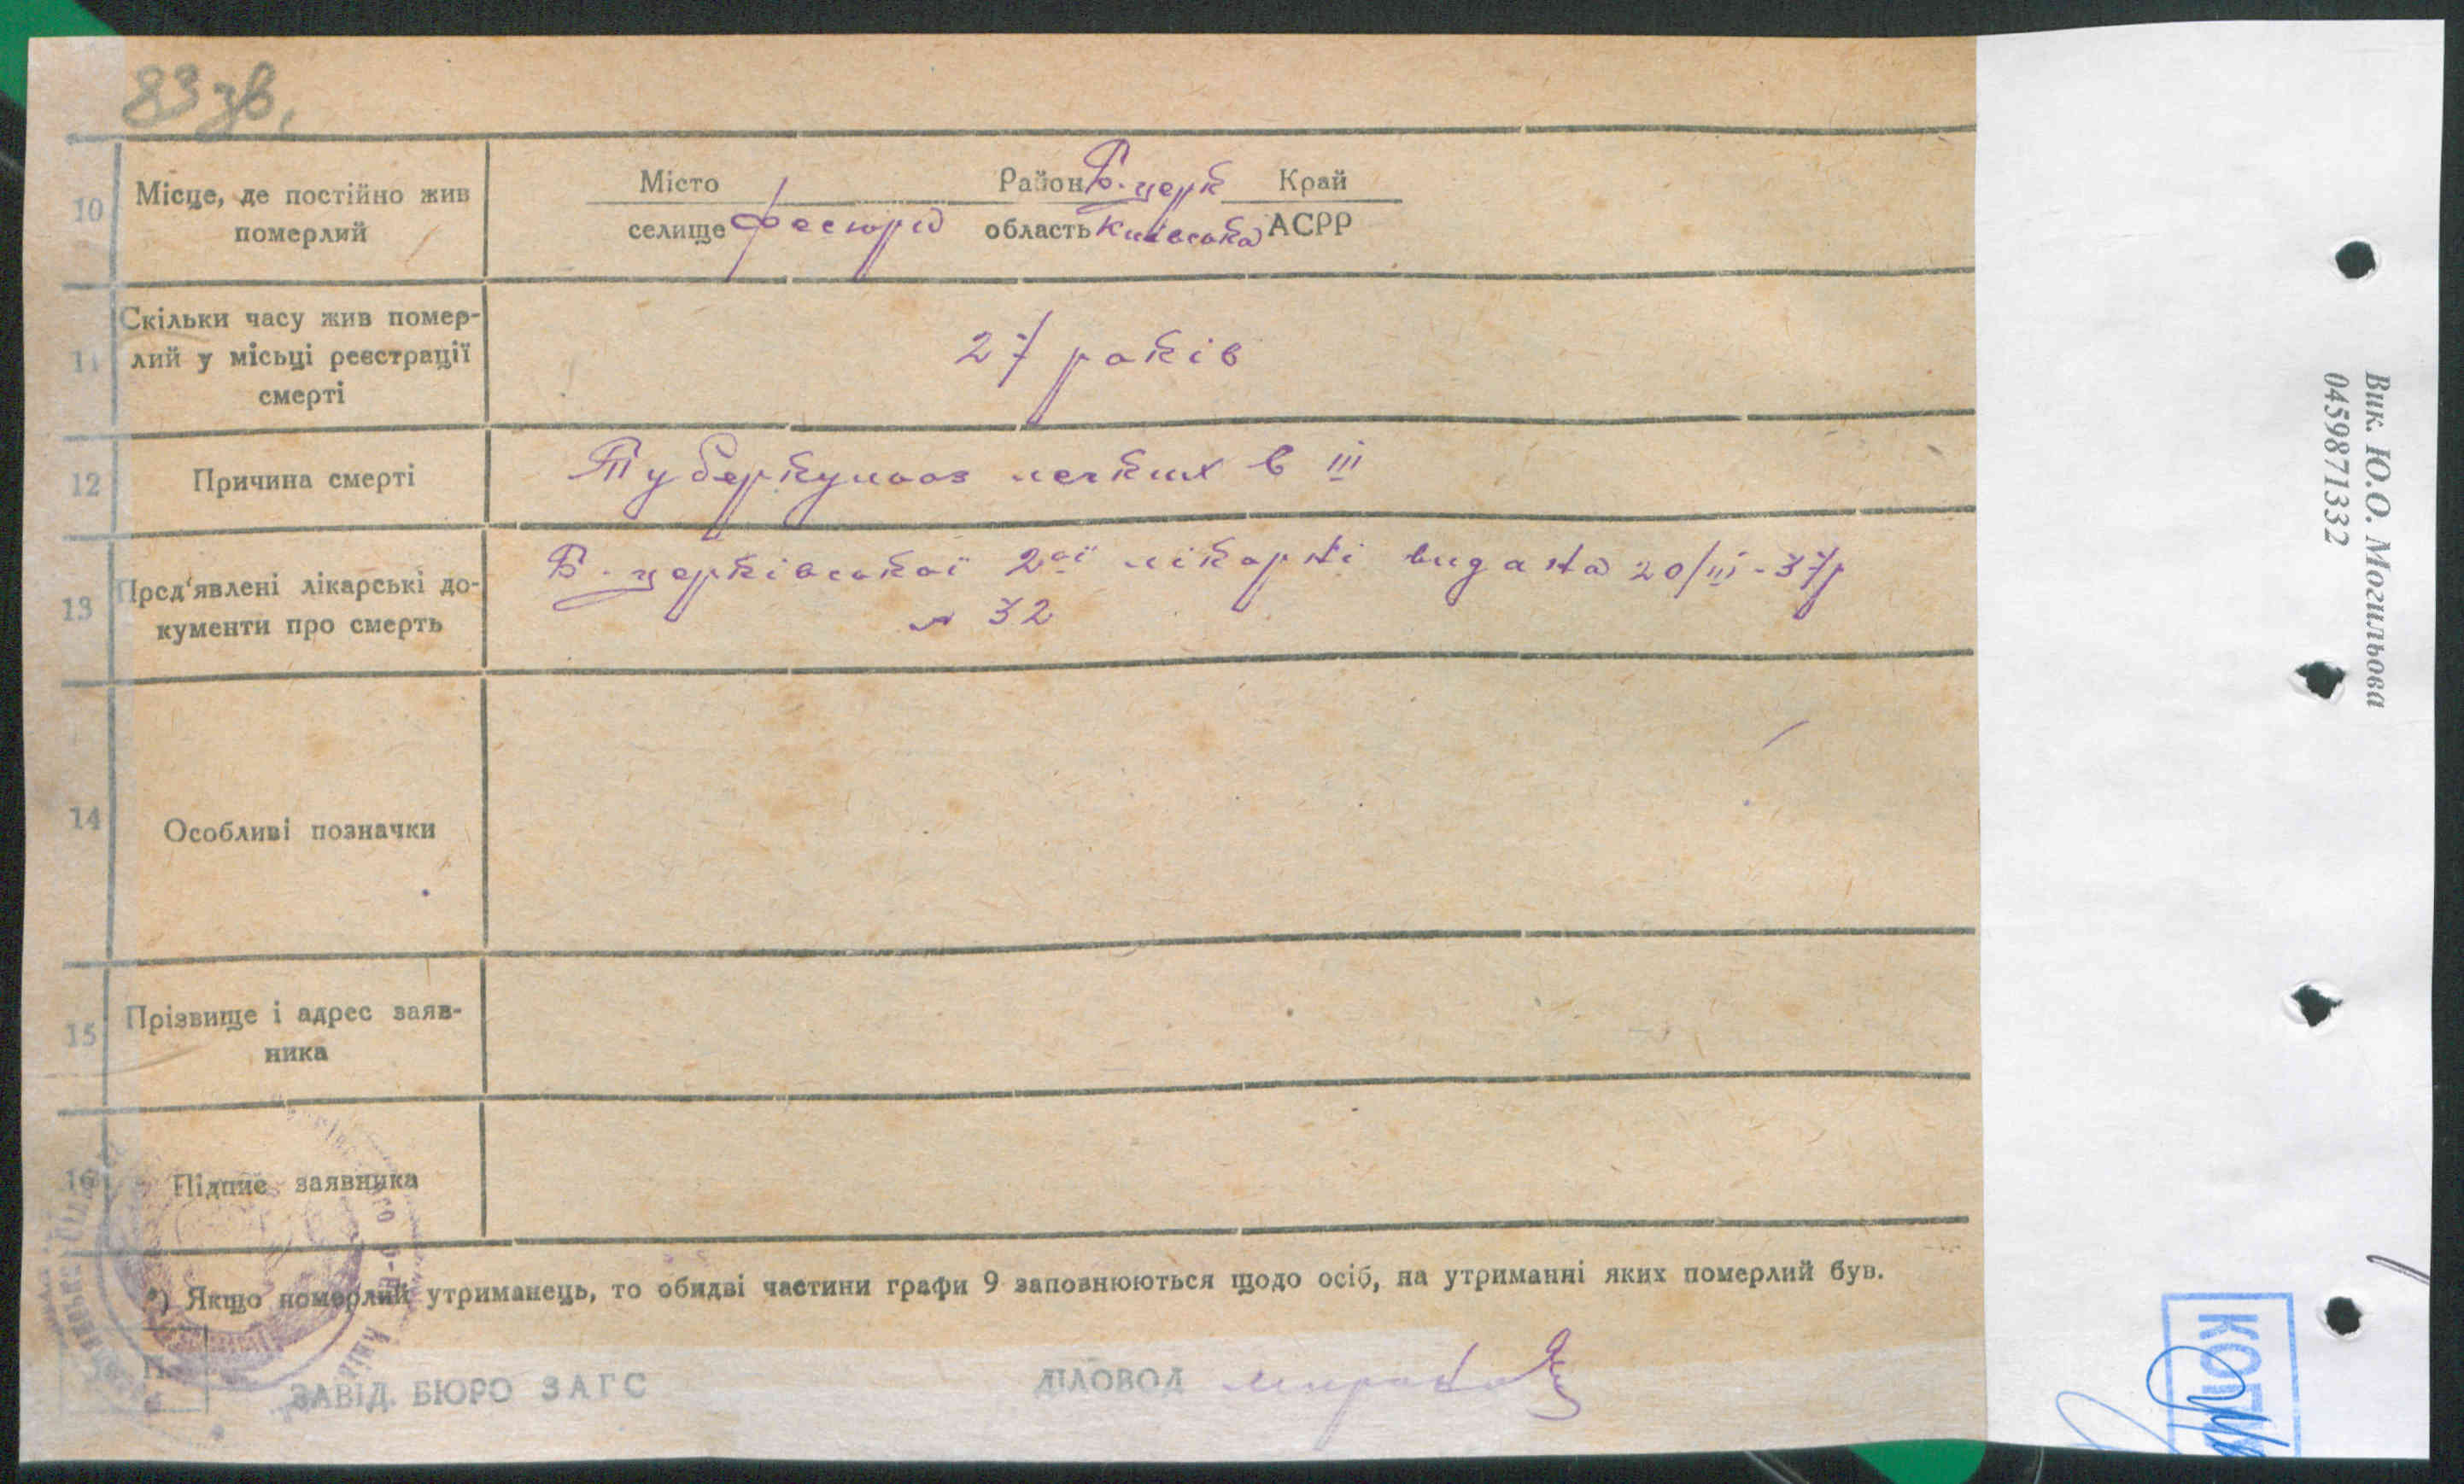 83 зв.
10 Місце, де постійно жив померлий
Місто Район Б.-церк Край
селище Фастівка область Київська АСРР
11 Скільки часу жив помер-
лий у місьці реєстрації
смерті
27 років
12 Причина смерті
Туберкульоз легких в III
13 Пред'явлені лікарські до-
кументи про смерть
Б.-церківської 2ої лікарні видана 20/III-37р
№ 32
14 Особливі позначки
15 Прізвище і адрес заяв-
ника
16 Підпис заявника
*) Якщо померлий утриманець, то обидві частини графи 9 заповнюються щодо осіб, на утриманні яких померлий був.
ЗАВІД. БЮРО ЗАГС
ДІЛОВОД
Вик. Ю.О. Могильова
0459871332